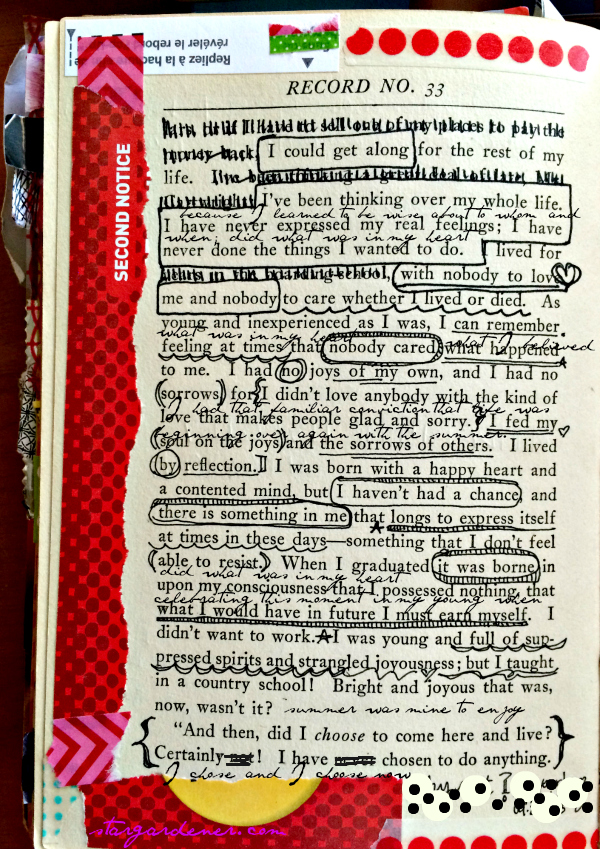 Repliez à la
révéler le rebord
RECORD NO. 33
SECOND NOTICE
to pay the
money back. I could get along for the rest of my
life. I've been thinking a great deal of late,
I've been thinking over my whole life.
because I learned to be wise about to whom and
I have never expressed my real feelings; I have
when; did what was in my heart
never done the things I wanted to do. I lived for
years in the boarding-school, with nobody to love
me and nobody to care whether I lived or died. As
young and inexperienced as I was, I can remember
what was in my heart what I believed
feeling at times that nobody cared what happened
to me. I had no joys of my own, and I had no
sorrows, for I didn't love anybody with the kind of
I had that familiar conviction that life was
love that makes people glad and sorry. I fed my
beginning over again with the summer.
soul on the joys and the sorrows of others. I lived
by reflection. I was born with a happy heart and
a contented mind, but I haven't had a chance, and
there is something in me that longs to express itself
at times in these days—something that I don't feel
able to resist. When I graduated it was borne in
did what was in my heart
upon my consciousness that I possessed nothing, that
celebrating this moment in my young when
what I would have in future I must earn myself. I
didn't want to work. I was young and full of sup-
pressed spirits and strangled joyousness; but I taught
in a country school! Bright and joyous that was,
now, wasn't it? summer was mine to enjoy
"And then, did I choose to come here and live?
Certainly not! I have never chosen to do anything.
I chose and I choose now
stargardener.com